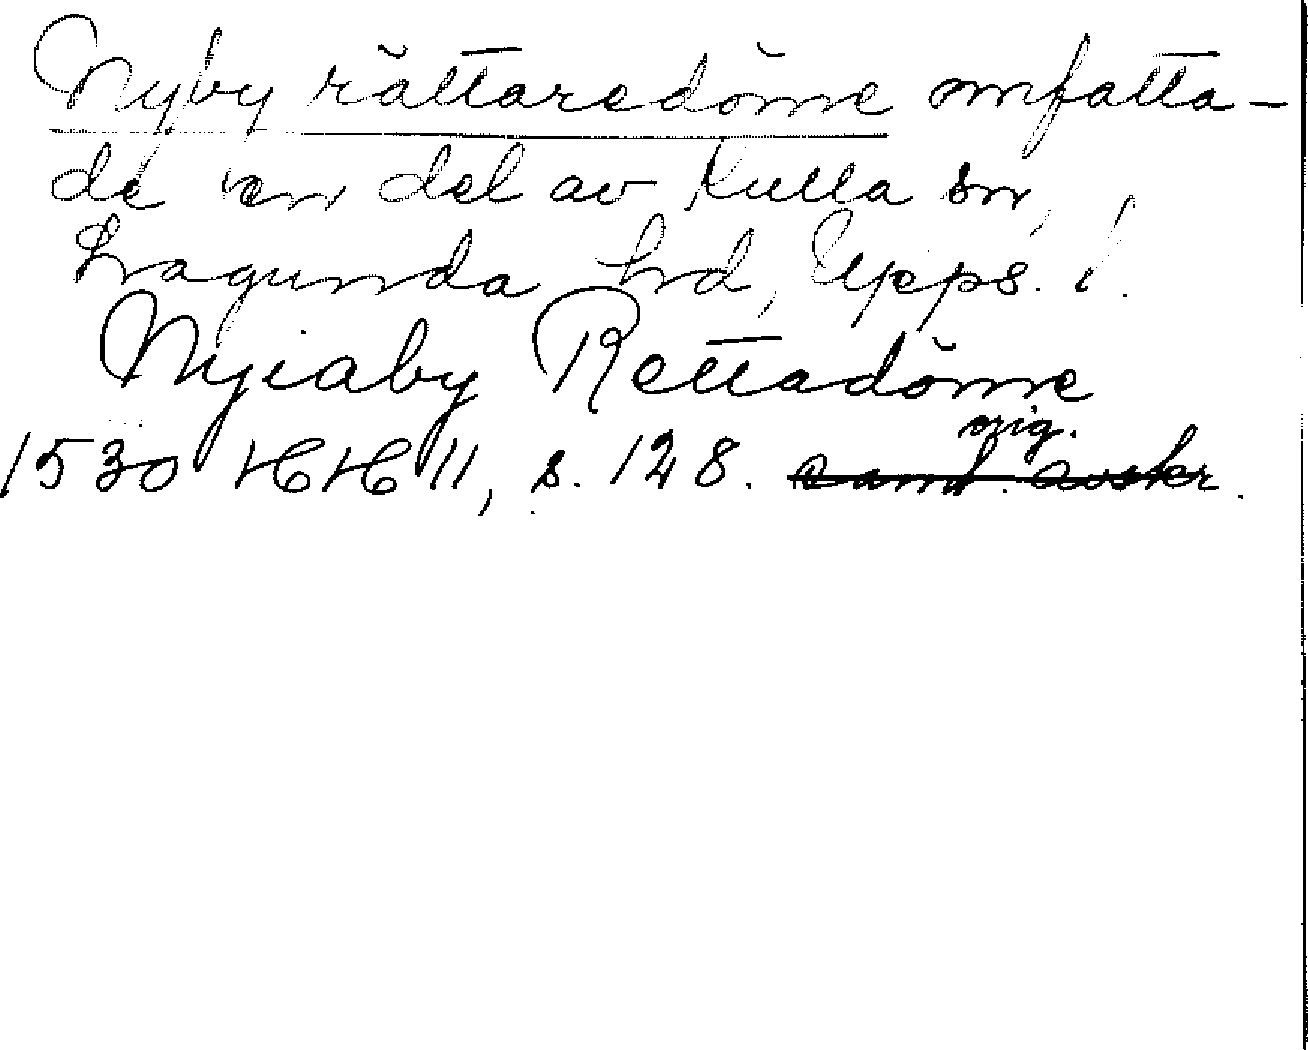 Nyby rättaredöme omfatta-
de en del av Kulla sn,
Lagunda hd, Upps. l.
Nyiaby Rettadöme
orig.
1530 HH 11, s. 128. samt. avskr.